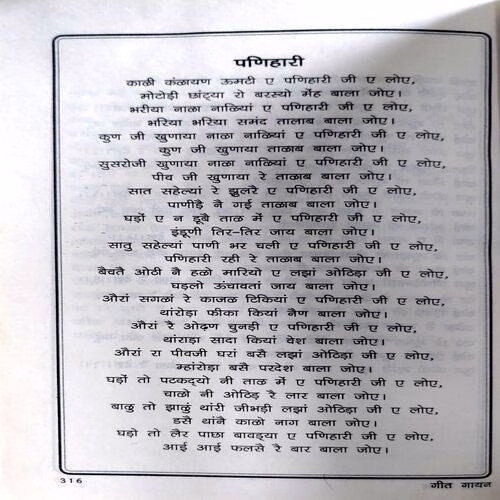 पणिहारी
काळी कंळायण ऊमटी ए पणिहारी जी ए लोए,
मोटोड़ी छांट्या रो बरस्यो मेंह बाला जोए।
भरीया नाळा नाळियां ए पणिहारी जी ए लोए,
भरिया भरिया समंद तालाब बाला जोए।
कुण जी खुणाया नाळा नाळियां ए पणिहारी जी ए लोए,
कुण जी खुणाया ताळाब बाला जोए।
सुसरोजी खुणाया नाळा नाळियां ए पणिहारी जी ए लोए,
पीव जी खुणाया रे ताळाब बाला जोए।
सात सहेल्यां रे झुलरै ए पणिहारी जी ए लोए,
पाणीड़ै नै गई ताळाब बाला जोए।
घड़ों ए न डूबै ताळ में ए पणिहारी जी ए लोए,
इंडूणी तिर-तिर जाय बाला जोए।
सातु सहेल्यां पाणी भर चली ए पणिहारी जी ए लोए,
पणिहारी रही रे ताळाब बाला जोए।
बैवतै ओठी नै हळो मारियो ए लझां ओठिड़ा जी ए लोए,
घड़लो ऊंचावतां जाय बाला जोए।
औरां सगळां रे काजळ टिकियां ए पणिहारी जी ए लोए,
थांरोड़ा फीका कियां नैण बाला जोए।
औरां रै ओढ़ण चुनड़ी ए पणिहारी जी ए लोए,
थांराड़ा सादा कियां वेश बाला जोए।
औरां रा पीवजी घरां बसै लझां ओठिड़ा जी ए लोए,
म्हांरोड़ा बसै परदेश बाला जोए।
घड़ों तो पटकद्यो नी ताळ में ए पणिहारी जी ए लोए,
चाळो नी ओठिड़ रै लार बाला जोए।
बाळु तो झाळुं थांरी जीभड़ी लझां ओठिड़ा जी ए लोए,
डसै थांनै काळो नाग बाला जोए।
घड़ो तो लैर पाछा बावड्या ए पणिहारी जी ए लोए,
आई आई फलसै रै बार बाला जोए।
316
गीत गायन